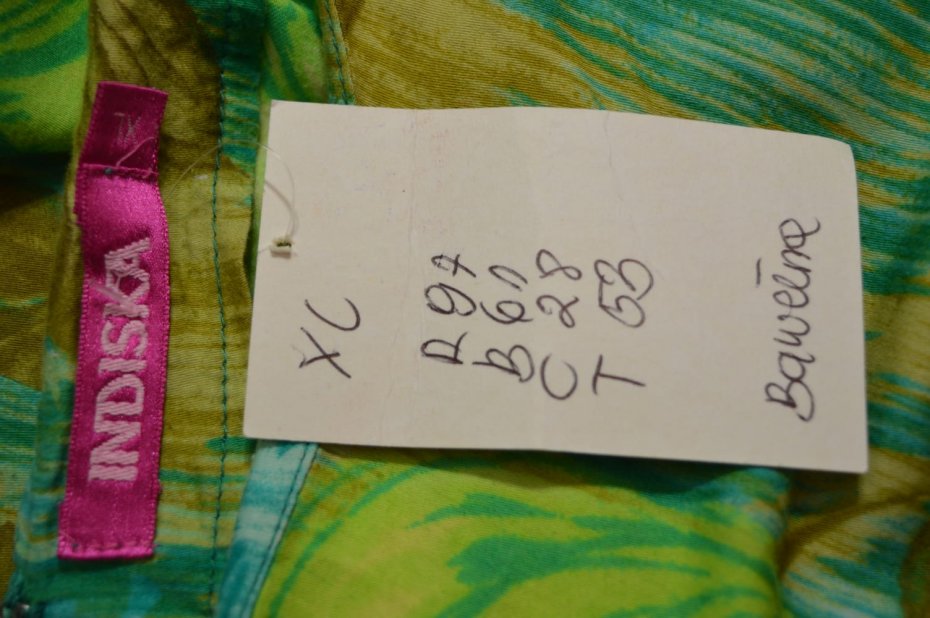 INDISKA
XL
A 97
B 61
C 28
T 53
Bawełna